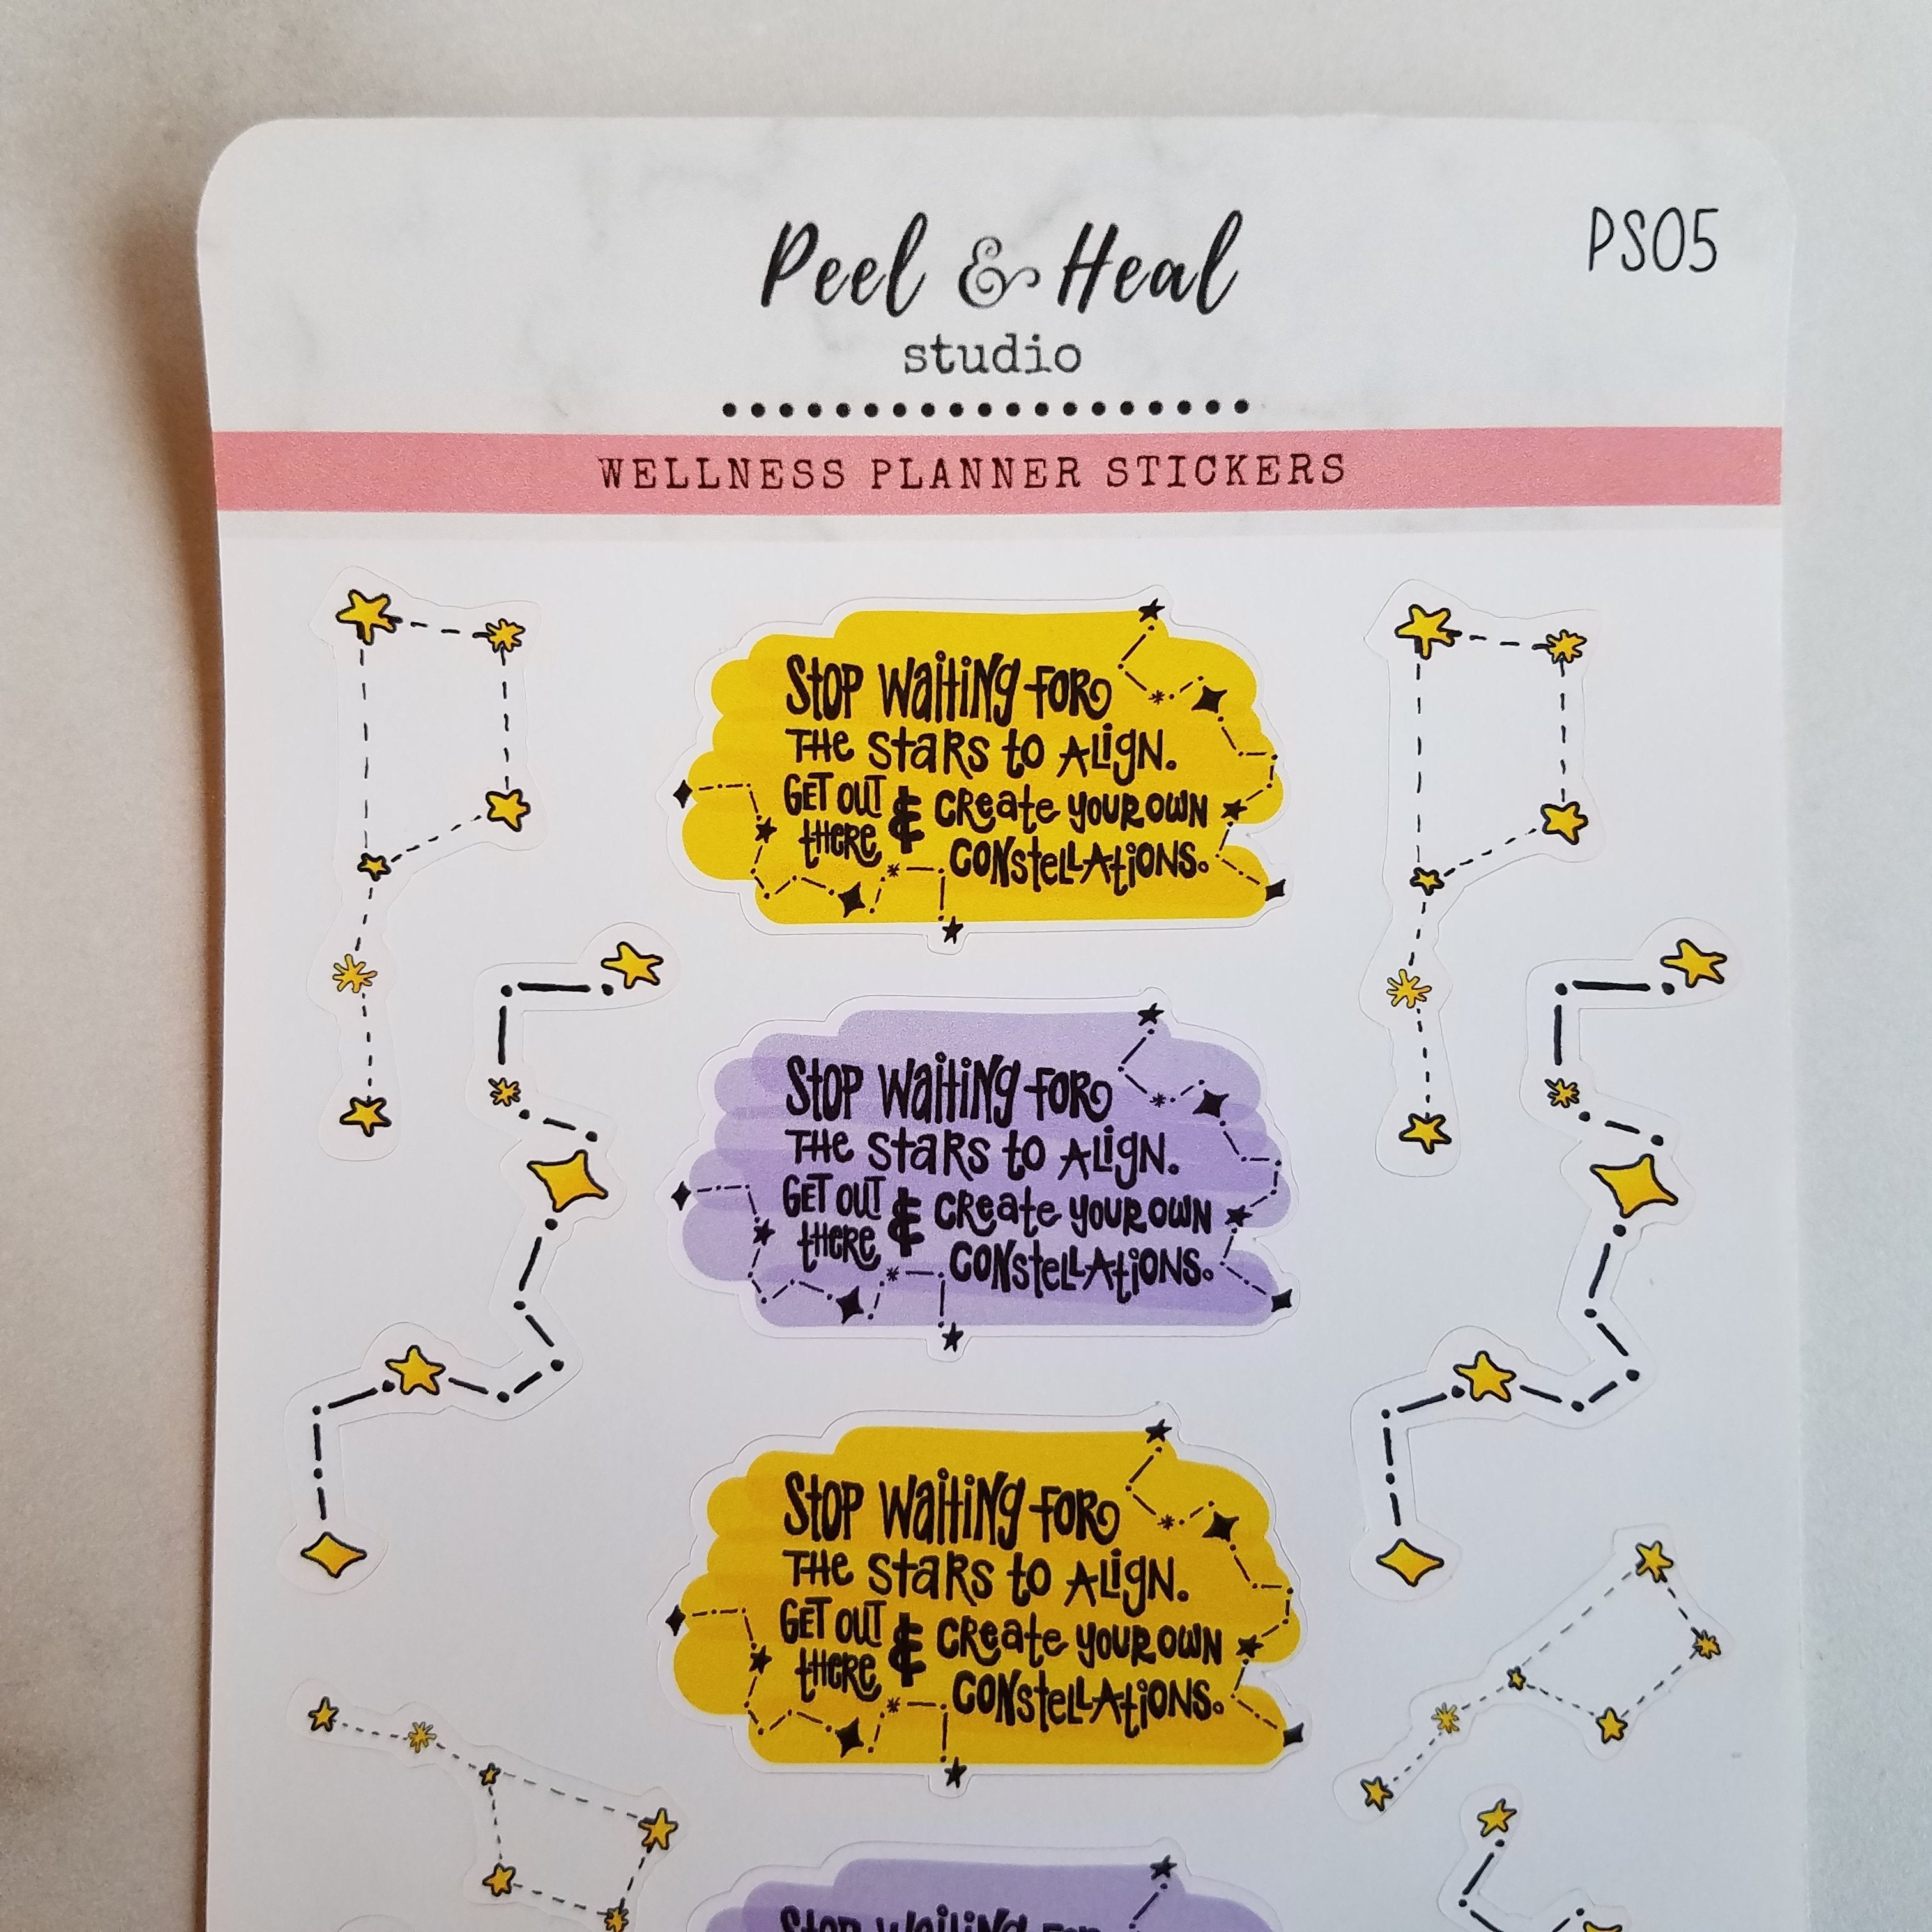 Peel & Heal
PS05
studio
WELLNESS PLANNER STICKERS
Stop Waiting for
the stars to align.
Get out there & create your own
constellations.
Stop Waiting for
the stars to align.
Get out there & create your own
constellations.
Stop Waiting for
the stars to align.
Get out there & create your own
constellations.
Stop Waiting for